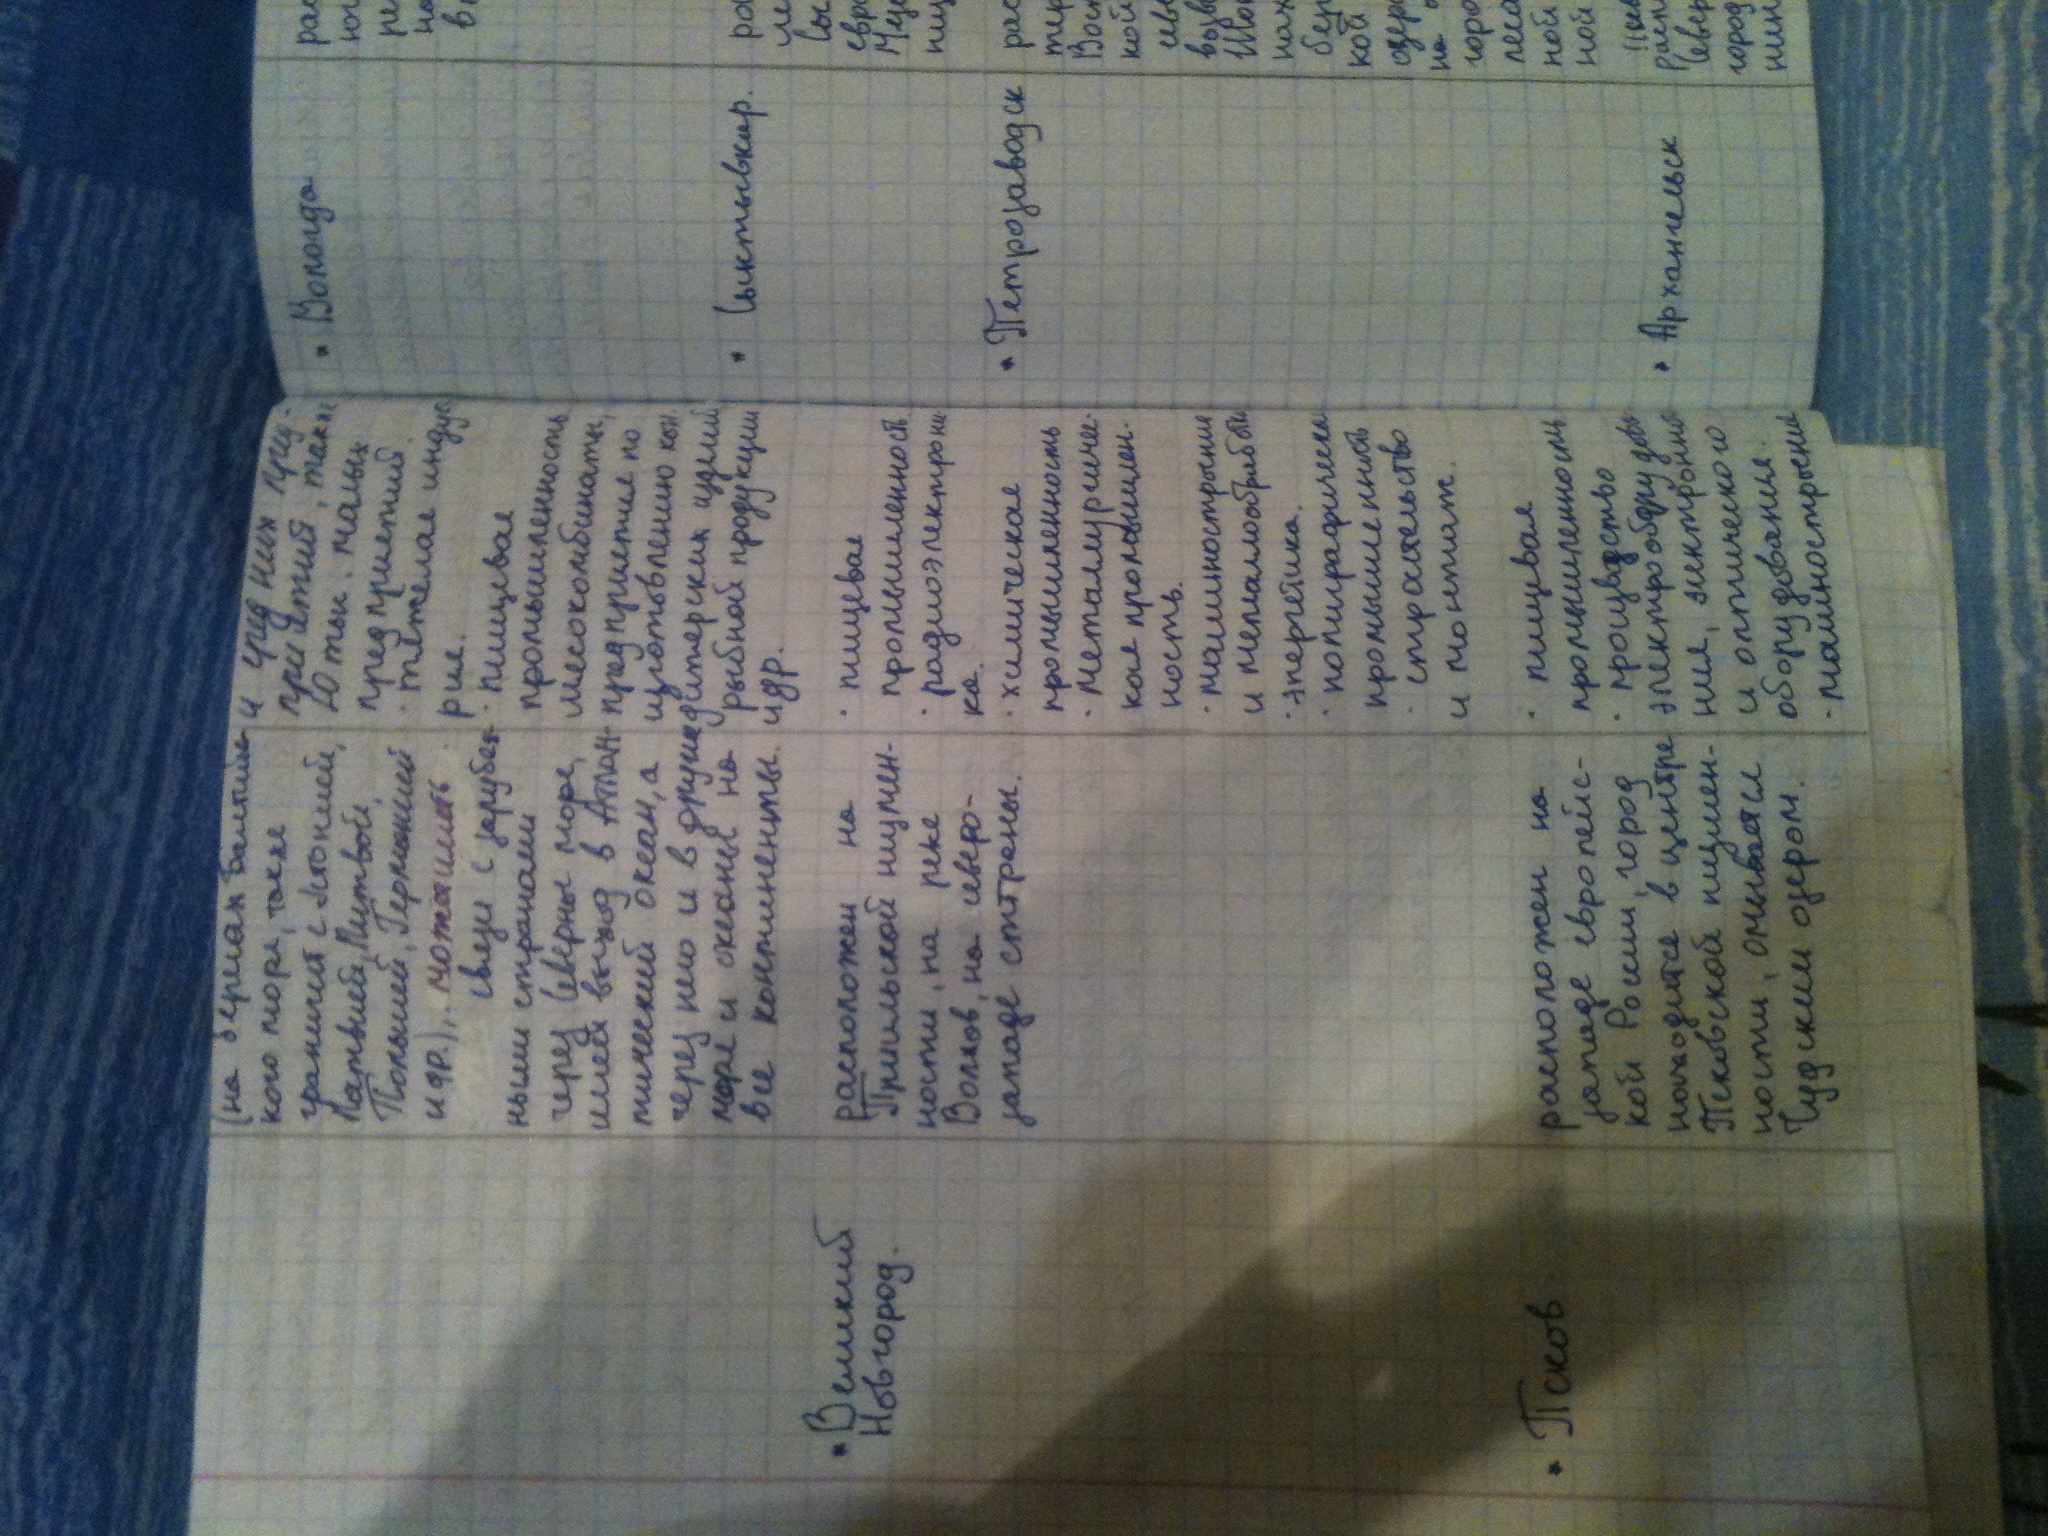 (на берегах Балтийс-
кого моря, также
граничит с Эстонией,
Латвией, Литвой,
Польшей, Германией
и др.),
связи с зарубеж-
ными странами
через северные моря,
имеет выход в Атлан-
тический океан, а
через него и в другие
моря и океаны на
все континенты.
и
них
приятий, также
20 тыс. малых
предприятий.
· тяжелая индуст
рия.
· пищевая
промышленность
мясокомбинаты,
предприятие по
изготовлению кон
дитерских изделий
рыбной продукции
и др.
* Великий
Новгород.
расположен на
Приильской низмен-
ности, на реке
Волхов, на северо-
западе страны.
· пищевая
промышленность
· радиоэлектрони
ка.
· химическая
промышленность
· металлургичес-
кая промышлен-
ность.
· машиностроение
и металлообработка
· энергетика.
· полиграфическая
промышленность
· строительство
и монтаж.
* Псков
расположен на
западе европейс-
кой России, город
находится в центре
Псковской низмен-
ности, омывается
Чудским озером.
· пищевая
промышленность
· производство
электрооборудова
ния, электронного
и оптического
оборудования.
· машиностроение
* Вологда
* Сыктывкар.
* Петрозаводск
* Архангельск